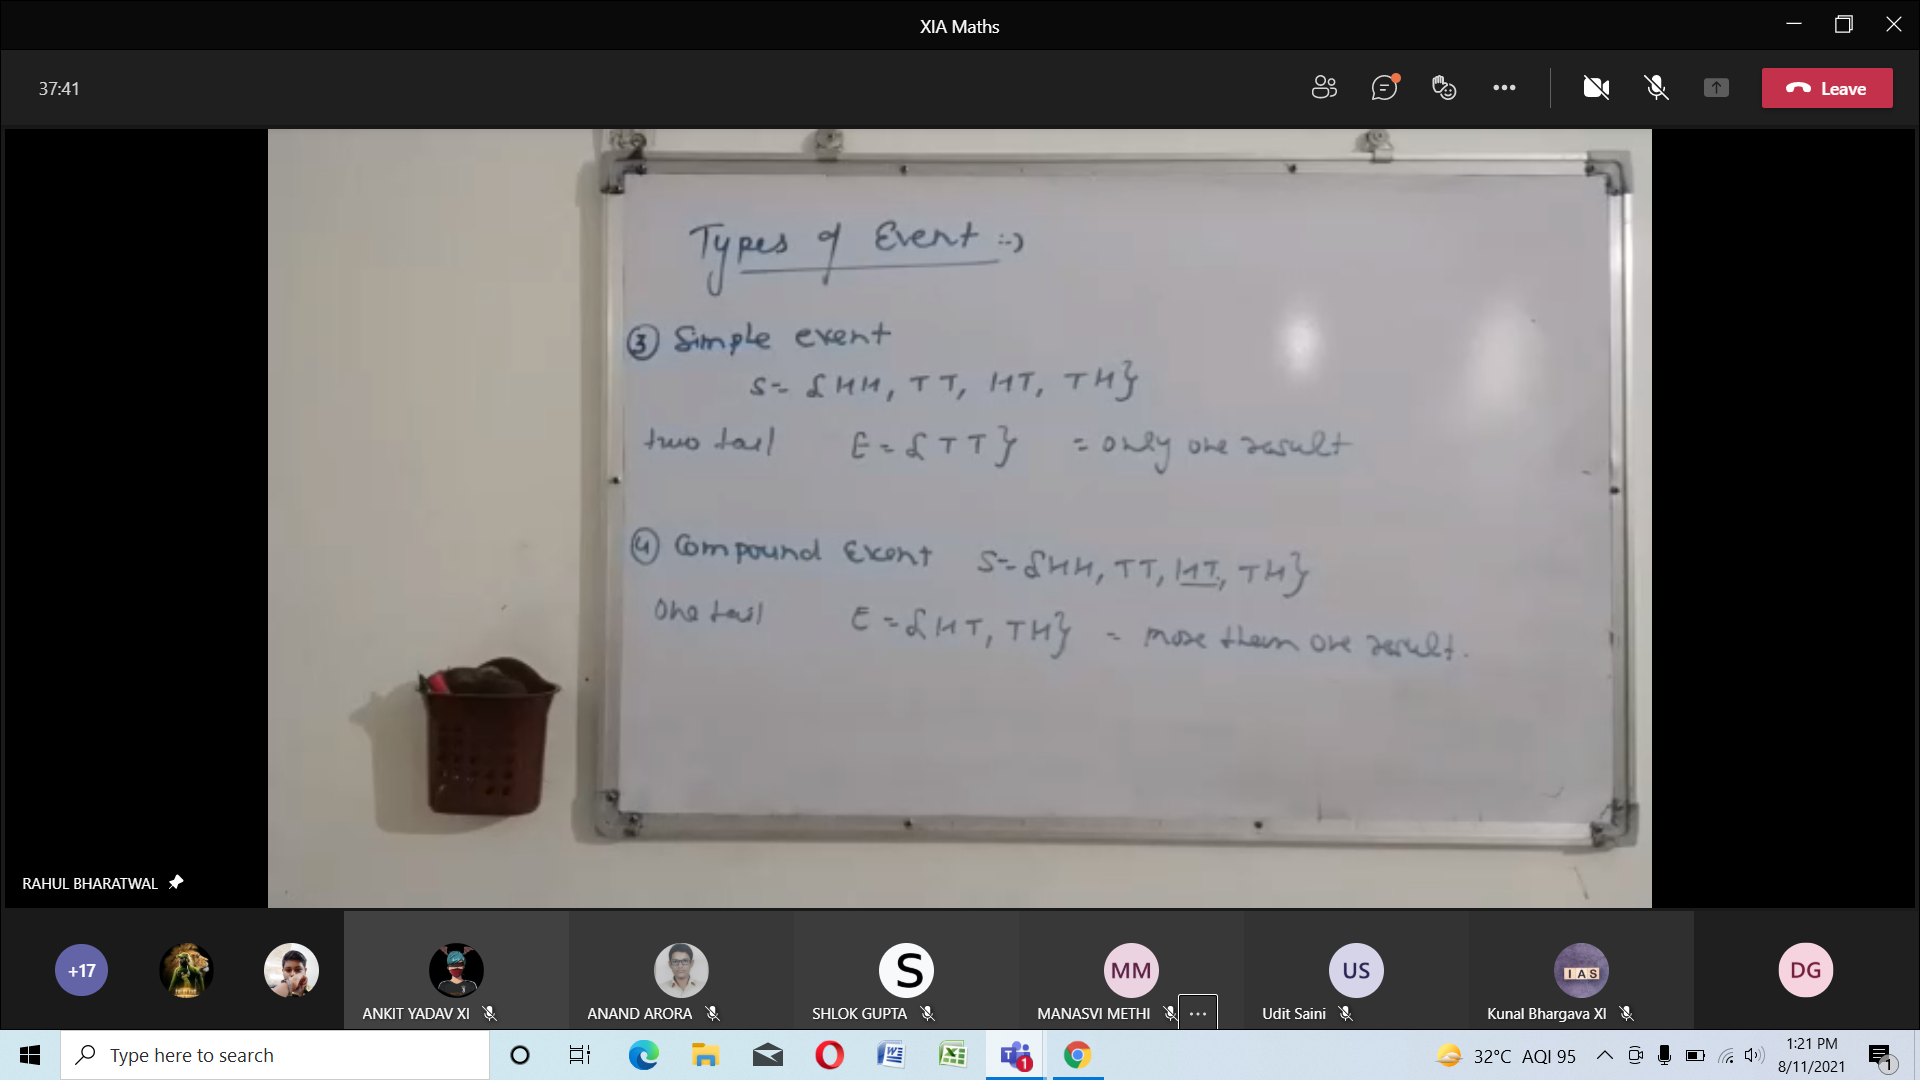 XIA Maths
37:41
Leave
Types of Event :-)
③ Simple event
S= {HH, TT, HT, TH}
two tail E = {TT} = only one result
④ Compound Event S= {HH, TT, HT, TH}
One tail E = {HT, TH} = more them one result.
RAHUL BHARATWAL
+17
ANKIT YADAV XI
ANAND ARORA
S
SHLOK GUPTA
MM
MANASVI METHI
US
Udit Saini
IAS
Kunal Bhargava XI
DG
Type here to search
1
32°C AQI 95
1:21 PM
8/11/2021
1